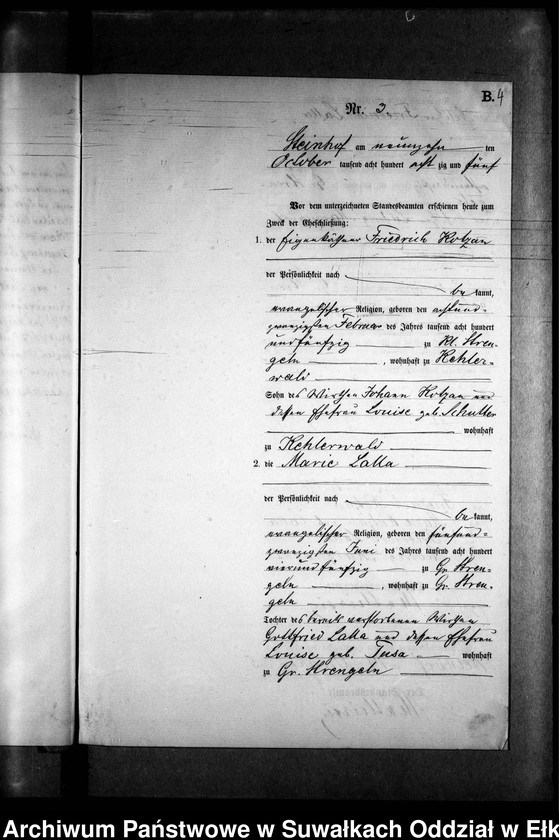 B. 4
Nr. 3
Steinhof am neunzehn ten
October tausend acht hundert acht zig und fünf
Vor dem unterzeichneten Standesbeamten erschienen heute zum
Zweck der Eheschließung:
1. der Eigenkäthner Friedrich Kotzan
der Persönlichkeit nach
be kannt,
evangelischer Religion, geboren den achtund=
zwanzigsten Februar des Jahres tausend acht hundert
undfünfzig zu Kl. Stren-
geln, wohnhaft zu Kehler-
wald
Sohn des Wirthen Johann Kotzan und
dessen Ehefrau Louise geb. Schutter
wohnhaft
zu Kehlerwald
2. die Marie Lalla
der Persönlichkeit nach
be kannt,
evangelischer Religion, geboren den fünfund=
zwanzigsten Juni des Jahres tausend acht hundert
vierundfünfzig zu Gr. Stren-
geln, wohnhaft zu Gr. Stren-
geln
Tochter des bereits verstorbenen Wirthen
Gottfried Lalla und dessen Ehefrau
Louise geb. Tusa wohnhaft
zu Gr. Strengeln
Archiwum Państwowe w Suwałkach Oddział w Ełk